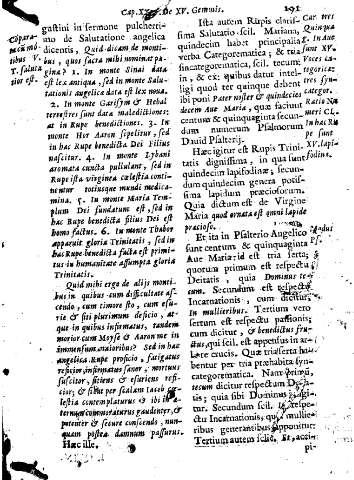 Cap. XX. De XV. Gemmis.
191
gustini in sermone pulcherri-
mo de Salutatione angelica
dicentis, Quid dicam de monti-
bus, quos sacra mihi nominat pa-
gina? 1. In monte Sinai data
est lex antiqua, sed in monte Salu-
tationis angelica data est lex nova.
2. In monte Garisym & Hebal
terrestres sunt data maledictiones:
at in Rupe benedictiones. 3. In
monte Hor Aaron sepelitur, sed
in hac Rupe benedicta Dei Filius
nascitur. 4. In monte Lybani
aromata cuncta pullulant, sed in
Rupe ista virginea cælestia conti-
nentur totiusque mundi medica-
mina. 5. In monte Maria Tem-
plum Dei fundatum est, sed in
hac Rupe benedicta filius Dei est
homo factus. 6. In monte Thabor
apparuit gloria Trinitatis, sed in
hac Rupe benedicta facta est primi-
tus in humanitate assumpta gloria
Trinitatis.
Quid mihi ergo de alijs monti-
bus in quibus cum difficultate as-
cendo, cum timore sto, cum esu-
rie & siti plurimum deficio, at-
que in quibus infirmatus, tandem
morior cum Moyse & Aaron me in
immensum oratioribus? Sed in hac
angelica Rupe proficio, fatigatus
reficior, infirmatus sanor, mortuus
suscitor, sitiens & esuriens refi-
cior; & sicut per scalam Iacob cæ-
lestia contemplatur & ibi in
æternum commoraturus gaudenter, &
potenter & secure conscendo, nun-
quam postea damnum passurus.
Hæc ille,
Compara-
tio
montibus V.
T. saluta
tior est.
Ista autem Rupis clarissi-
ma Salutatio scil. Mariana,
quindecim habet principalia
Verba Categorematica; & tria
sincategorematica, scil. tecum;
in, & ex: quibus datur intel-
ligi quod ter quinque debent
ibi poni Pater noster & quindecies
decem Ave Maria, quæ faciunt
centum & quinquaginta secun-
dum numerum Psalmorum
David Psalterij.
Hæc igitur est Rupis Trini-
tatis dignissima, in qua sunt
quindecim lapifodinæ; secun-
dum quindecim genera potis-
sima lapidum præciosorum.
Quia dictum est de Virgine
Maria quod ornata est omni lapide
pracioso.
Et ita in Psalterio Angelico
sunt centum & quinquaginta
Ave Mariæ: id est tria serta;
quorum primum est respectu
Deitatis, quia Dominus te-
cum. Secundum est respectu
Incarnationis, cum dicitur,
In mulieribus. Tertium vero
sertum est respectu passionis;
cum dicitur, & benedictus fru-
ctus, qui scil. est appensus in ar-
bore crucis. Quæ tria serta ha-
bentur per tria præhabita syn-
categorematica. Nam primũ,
tecum dicitur respectum Dei-
tatis; quia sibi Dominus assi-
gitur. Secundum scil. respectu
Incarnationis, quia in mulie-
ribus generantibus apponitur.
Tertium autem scil. Et, acci-
pi-
Cur tres
Quinqua
sunt XV.
Voces Ca-
tegoricæ:
tres syn-
categoricæ.
Ratio Nu
meri CL.
In hac Ru
pe sunt
XV. lapi-
fodinæ.